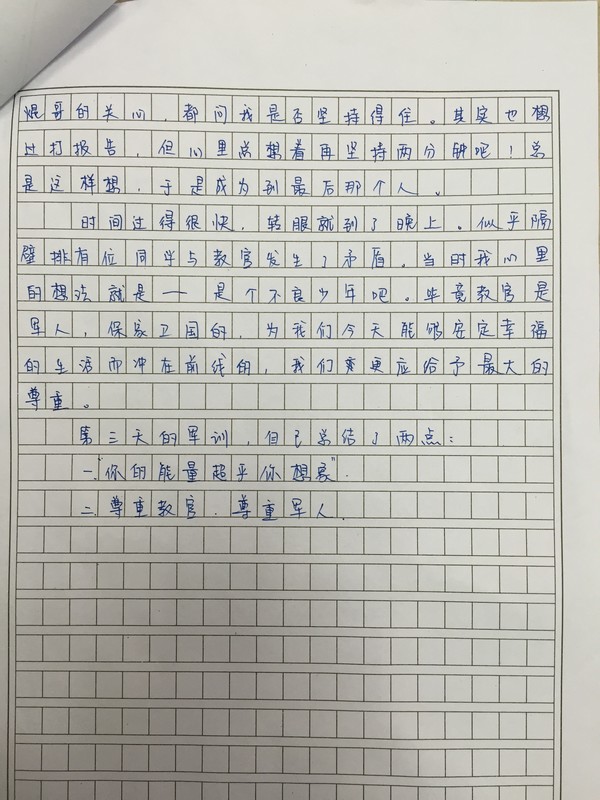 焜哥的关心，都问我是否坚持得住。其实也想
过打报告，但心里总想着再坚持两分钟吧！总
是这样想，于是成为别最后那个人。
时间过得很快，转眼就到了晚上。似乎隔
壁排有位同学与教官发生了矛盾。当时我心里
的想法就是——是个不良少年吧。毕竟教官是
军人，保家卫国的，为我们今天能够安定幸福
的生活而冲在前线的，我们更应给予最大的
尊重。
第三天的军训，但已总结了两点：
一."你的能量超乎你想象".
二.尊重教官.尊重军人.